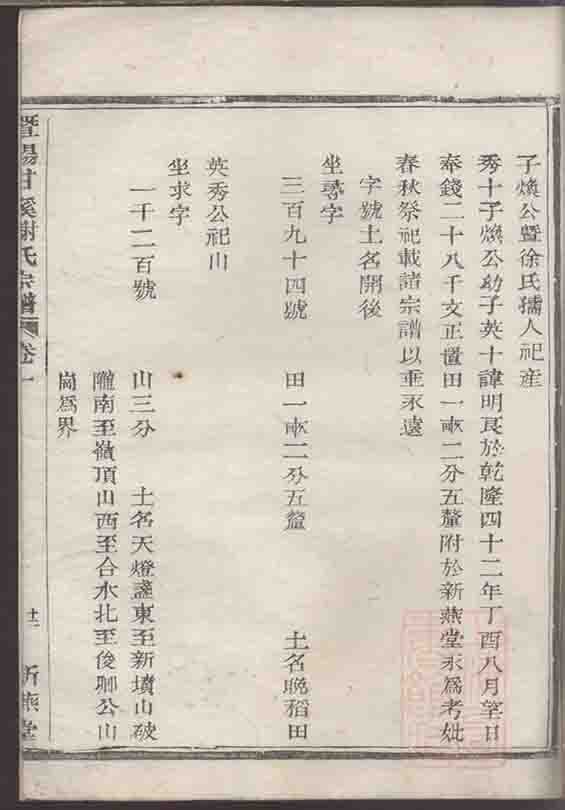 子煥公暨徐氏孺人祀產
秀十子煥公幼子英十諱明良於乾隆四十二年丁酉八月望日
奉錢二十八千文正置田一畝二分五釐附於新燕堂永爲考妣
春秋祭祀載諸宗譜以垂永遠
字號土名開後
坐尋字
三百九十四號 田一畝二分五釐 土名晚稻田
英秀公祀山
坐求字
一千二百號 山三分 土名天燈盞東至新墳山破
隴南至嶺頂山西至合水北至俊卿公山
崗爲界
暨陽甘溪謝氏宗譜 卷一 新燕堂